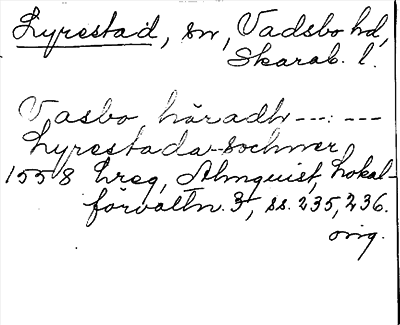 Lyrestad, sn, Vadsbo hd,
Skarab. l.
Vasbo häradh ---: ---
Lyrestada sochner
1558 Lreg, Almquist, Lokal-
förvaltn. 3, ss. 235, 236.
orig.